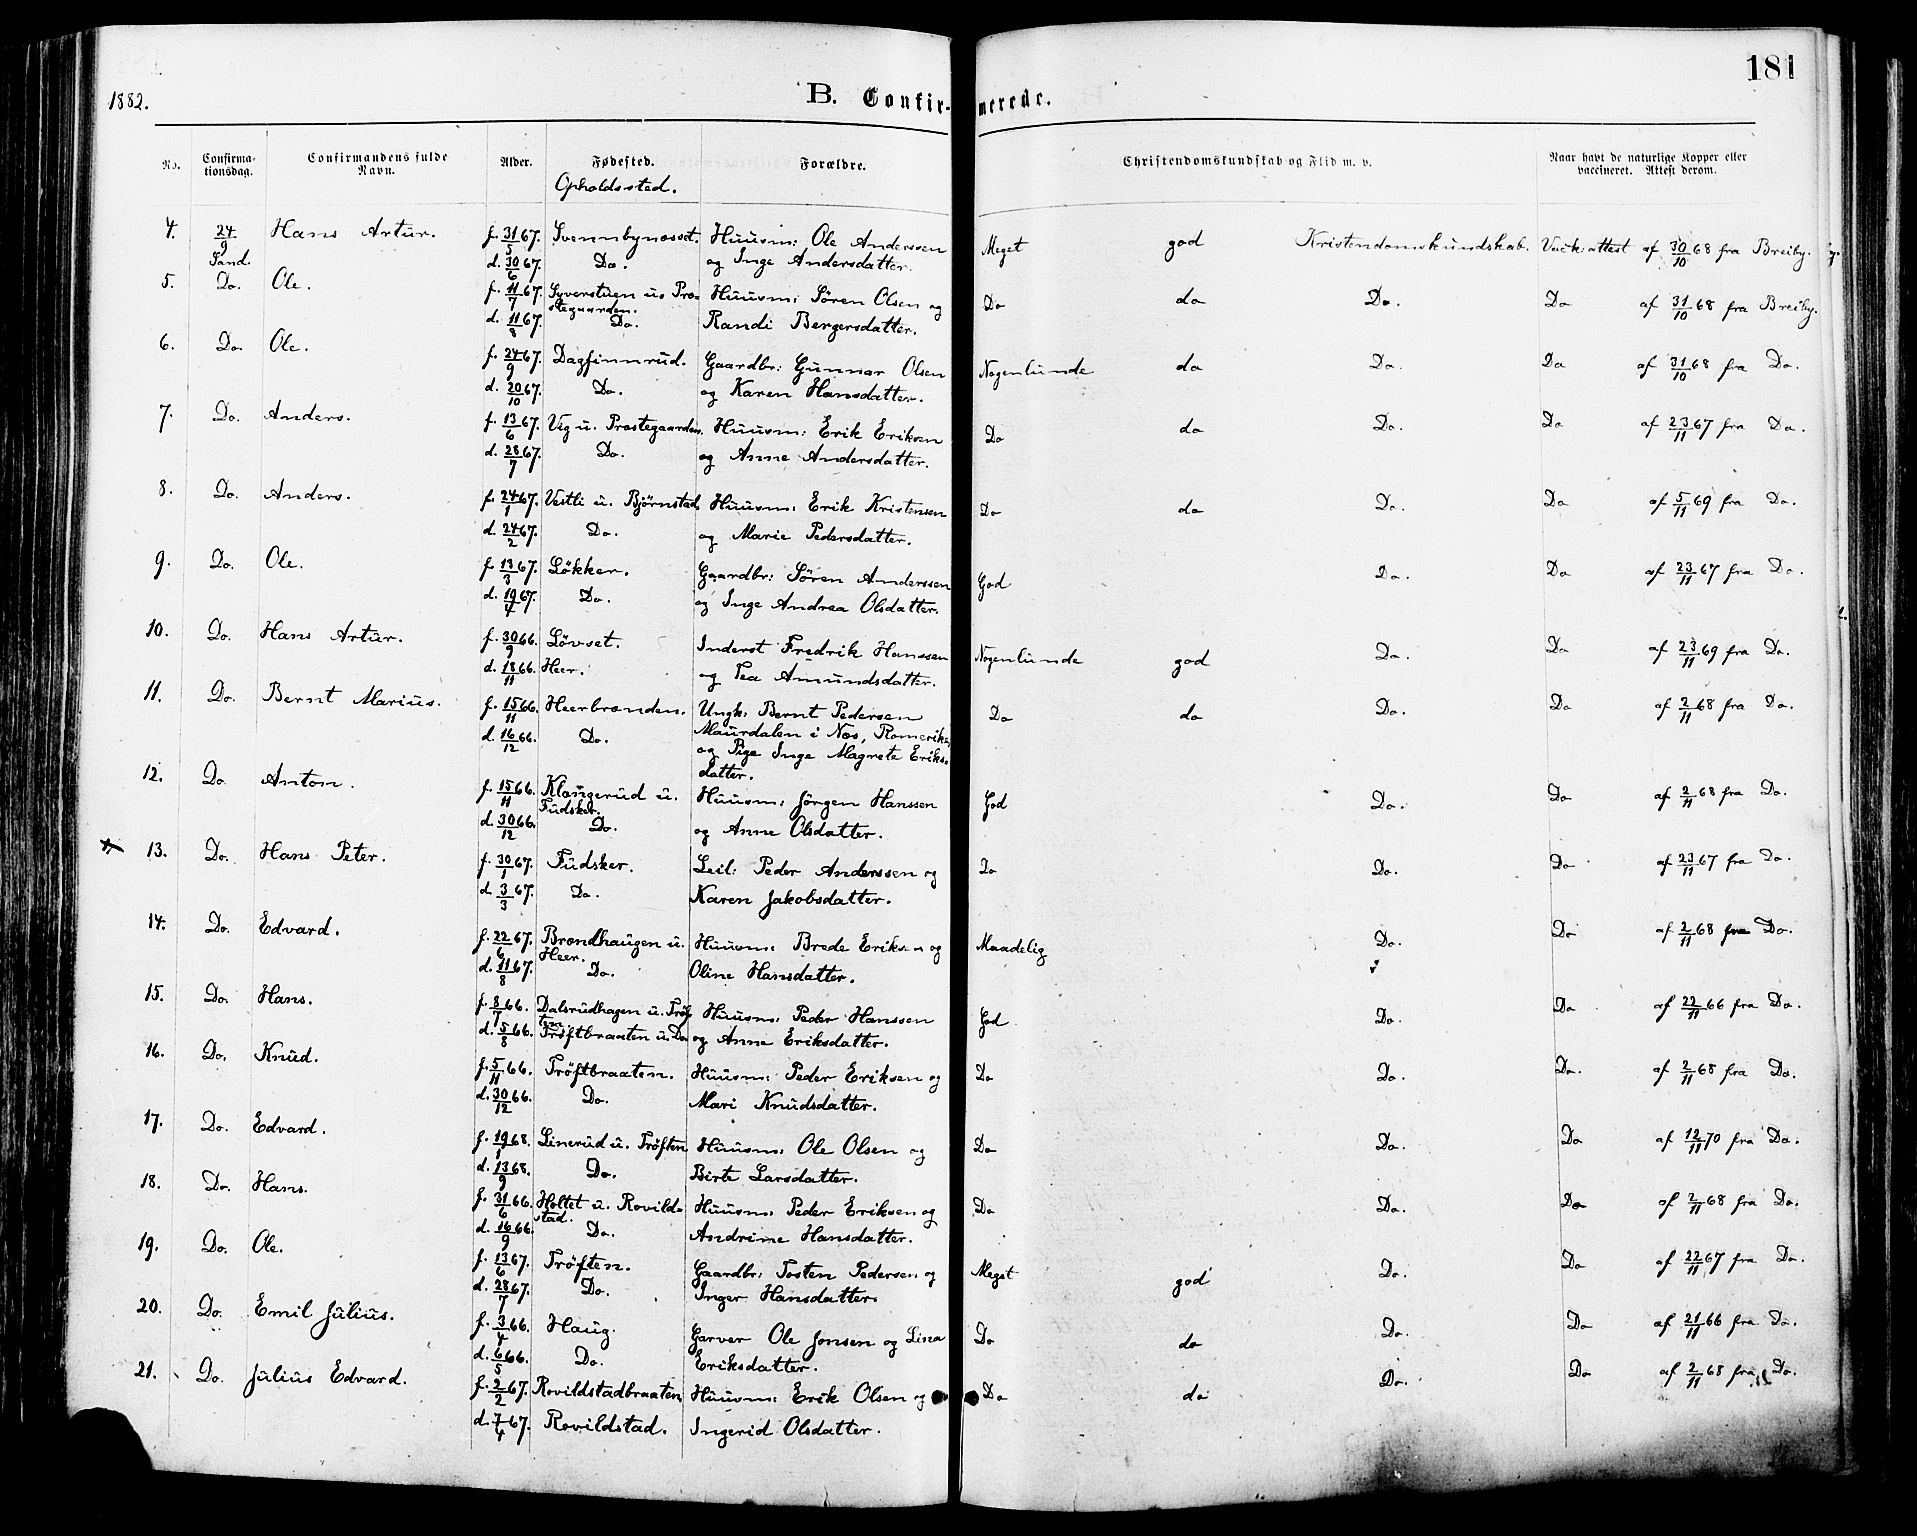 1882.
B. Confirmerede.
181
No.
Confirma-
tionsdag.
Confirmandens fulde
Navn.
Alder.
Fødested.
Opholdssted.
Forældre.
Christendomskundskab og Flid m. v.
Naar havt de naturlige Kopper eller
vaccineret. Attest derom.
4. 24/9 Hans Artur. f. 31/5 67. Svennbynæsset. Huusm: Ole Anderssen Meget god Kristendomskundskab. Vack: attest af 30/10 68 fra Breiby.
Fand. d. 30/6 67. Do. og Inge Andersdatter.
5. Do. Ole. f. 11/7 67. Syverstuen u. Præ- Huusm: Søren Olsen og Do do Do. Do af 31/10 68 fra Breiby.
stegaarden.
d. 11/8 67. Do. Randi Bergersdatter.
6. Do. Ole. f. 24/9 67. Dagfinnrud. Gaardbr: Gunnar Olsen Nogenlunde do Do. Do af 31/10 68 fra Do.
d. 20/10 67. Do. og Karen Hansdatter.
7. Do. Anders. f. 13/6 67. Vig u. Præstegaarden. Huusm: Erik Eriksen Do do Do. Do af 23/11 67 fra Do.
d. 28/7 67. Do. og Anne Andersdatter.
8. Do. Anders. f. 24/1 67. Vestli u. Bjørnstad Huusm: Erik Kristensen Do do Do. Do af 5/11 69 fra Do.
d. 24/2 67. Do. og Marie Pedersdatter.
9. Do. Ole. f. 13/3 67. Løkker. Gaardbr: Søren Anderssen God Do. Do af 23/11 67 fra Do.
d. 19/4 67. Do. og Inge Andrea Olsdatter.
10. Do. Hans Artur. f. 30/9 66. Løvset. Inderst Fredrik Hanssen Nogenlunde god Do. Do af 23/11 69 fra Do.
d. 18/11 66. Heer. og Tea Amundsdatter.
11. Do. Bernt Marius. f. 15/11 66. Heerbrænden. Ungk: Bernt Pedersen Do do Do. Do af 2/11 68 fra Do.
d. 16/12 66. Do. Maurdalen i Næs, Romerike,
og Pige Inge Magrete Eriks-
datter.
12. Do. Anton. f. 15/11 66. Klaugerud u. Huusm: Jørgen Hanssen God Do. Do af 2/11 68 fra Do.
Fudsker.
d. 30/12 66. Do. og Anne Olsdatter.
13. Do. Hans Peter. f. 30/1 67. Fudsker. Leil: Peder Anderssen og Do Do. Do af 23/11 67 fra Do.
d. 3/3 67. Do. Karen Jakobsdatter.
14. Do. Edvard. f. 22/6 67. Brændhaugen u. Huusm: Brede Eriksen og Maadelig Do. Do af 2/11 68 fra Do.
Heer.
d. 11/8 67. Do. Oline Hansdatter.
15. Do. Hans. f. 8/7 66. Dalsrudhagen u. Trøf- Huusm: Peder Hanssen God Do. Do af 22/11 66 fra Do.
ten.
d. 5/8 66. Trøftbraaten u. Do og Anne Eriksdatter.
16. Do. Knud. f. 5/11 66. Trøftbraaten. Huusm: Peder Eriksen og Do Do. Do. af 2/11 68 fra Do.
d. 30/12 66. Do. Mari Knudsdatter.
17. Do. Edvard. f. 19/1 68. Linerud u. Trøften Huusm: Ole Olsen og Do Do. Do af 12/11 70 fra Do.
d. 13/9 68. Do. Birte Larsdatter.
18. Do. Hans. f. 31/6 66. Holtet u. Rovild- Huusm: Peder Eriksen og Do Do. Do af 2/11 68 fra Do.
stad.
d. 16/9 66. Do. Andrine Hansdatter.
19. Do. Ole. f. 13/6 67. Trøften. Gaardbr: Tosten Pedersen og Meget god Do. Do af 22/11 67 fra Do.
d. 28/7 67. Do. Inger Hansdatter.
20. Do. Emil Julius. f. 3/4 66. Haug. Garver Ole Jonsen og Lina Do do Do. Do af 21/11 66 fra Do.
d. 6/5 66. Do. Eriksdatter.
21. Do. Julius Edvard. f. 2/2 67. Rovildstadbraaten. Huusm: Erik Olsen og Do do Do. Do af 2/11 68 fra Do.
d. 7/4 67. Rovildstad. Ingerid Olsdatter.